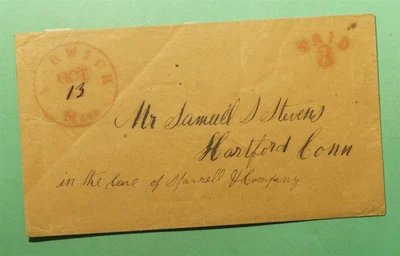 HARWICH
OCT
13
Mass
PAID
3
Mr Samuell S Stevens
Hartford Conn
in the Care of & Company